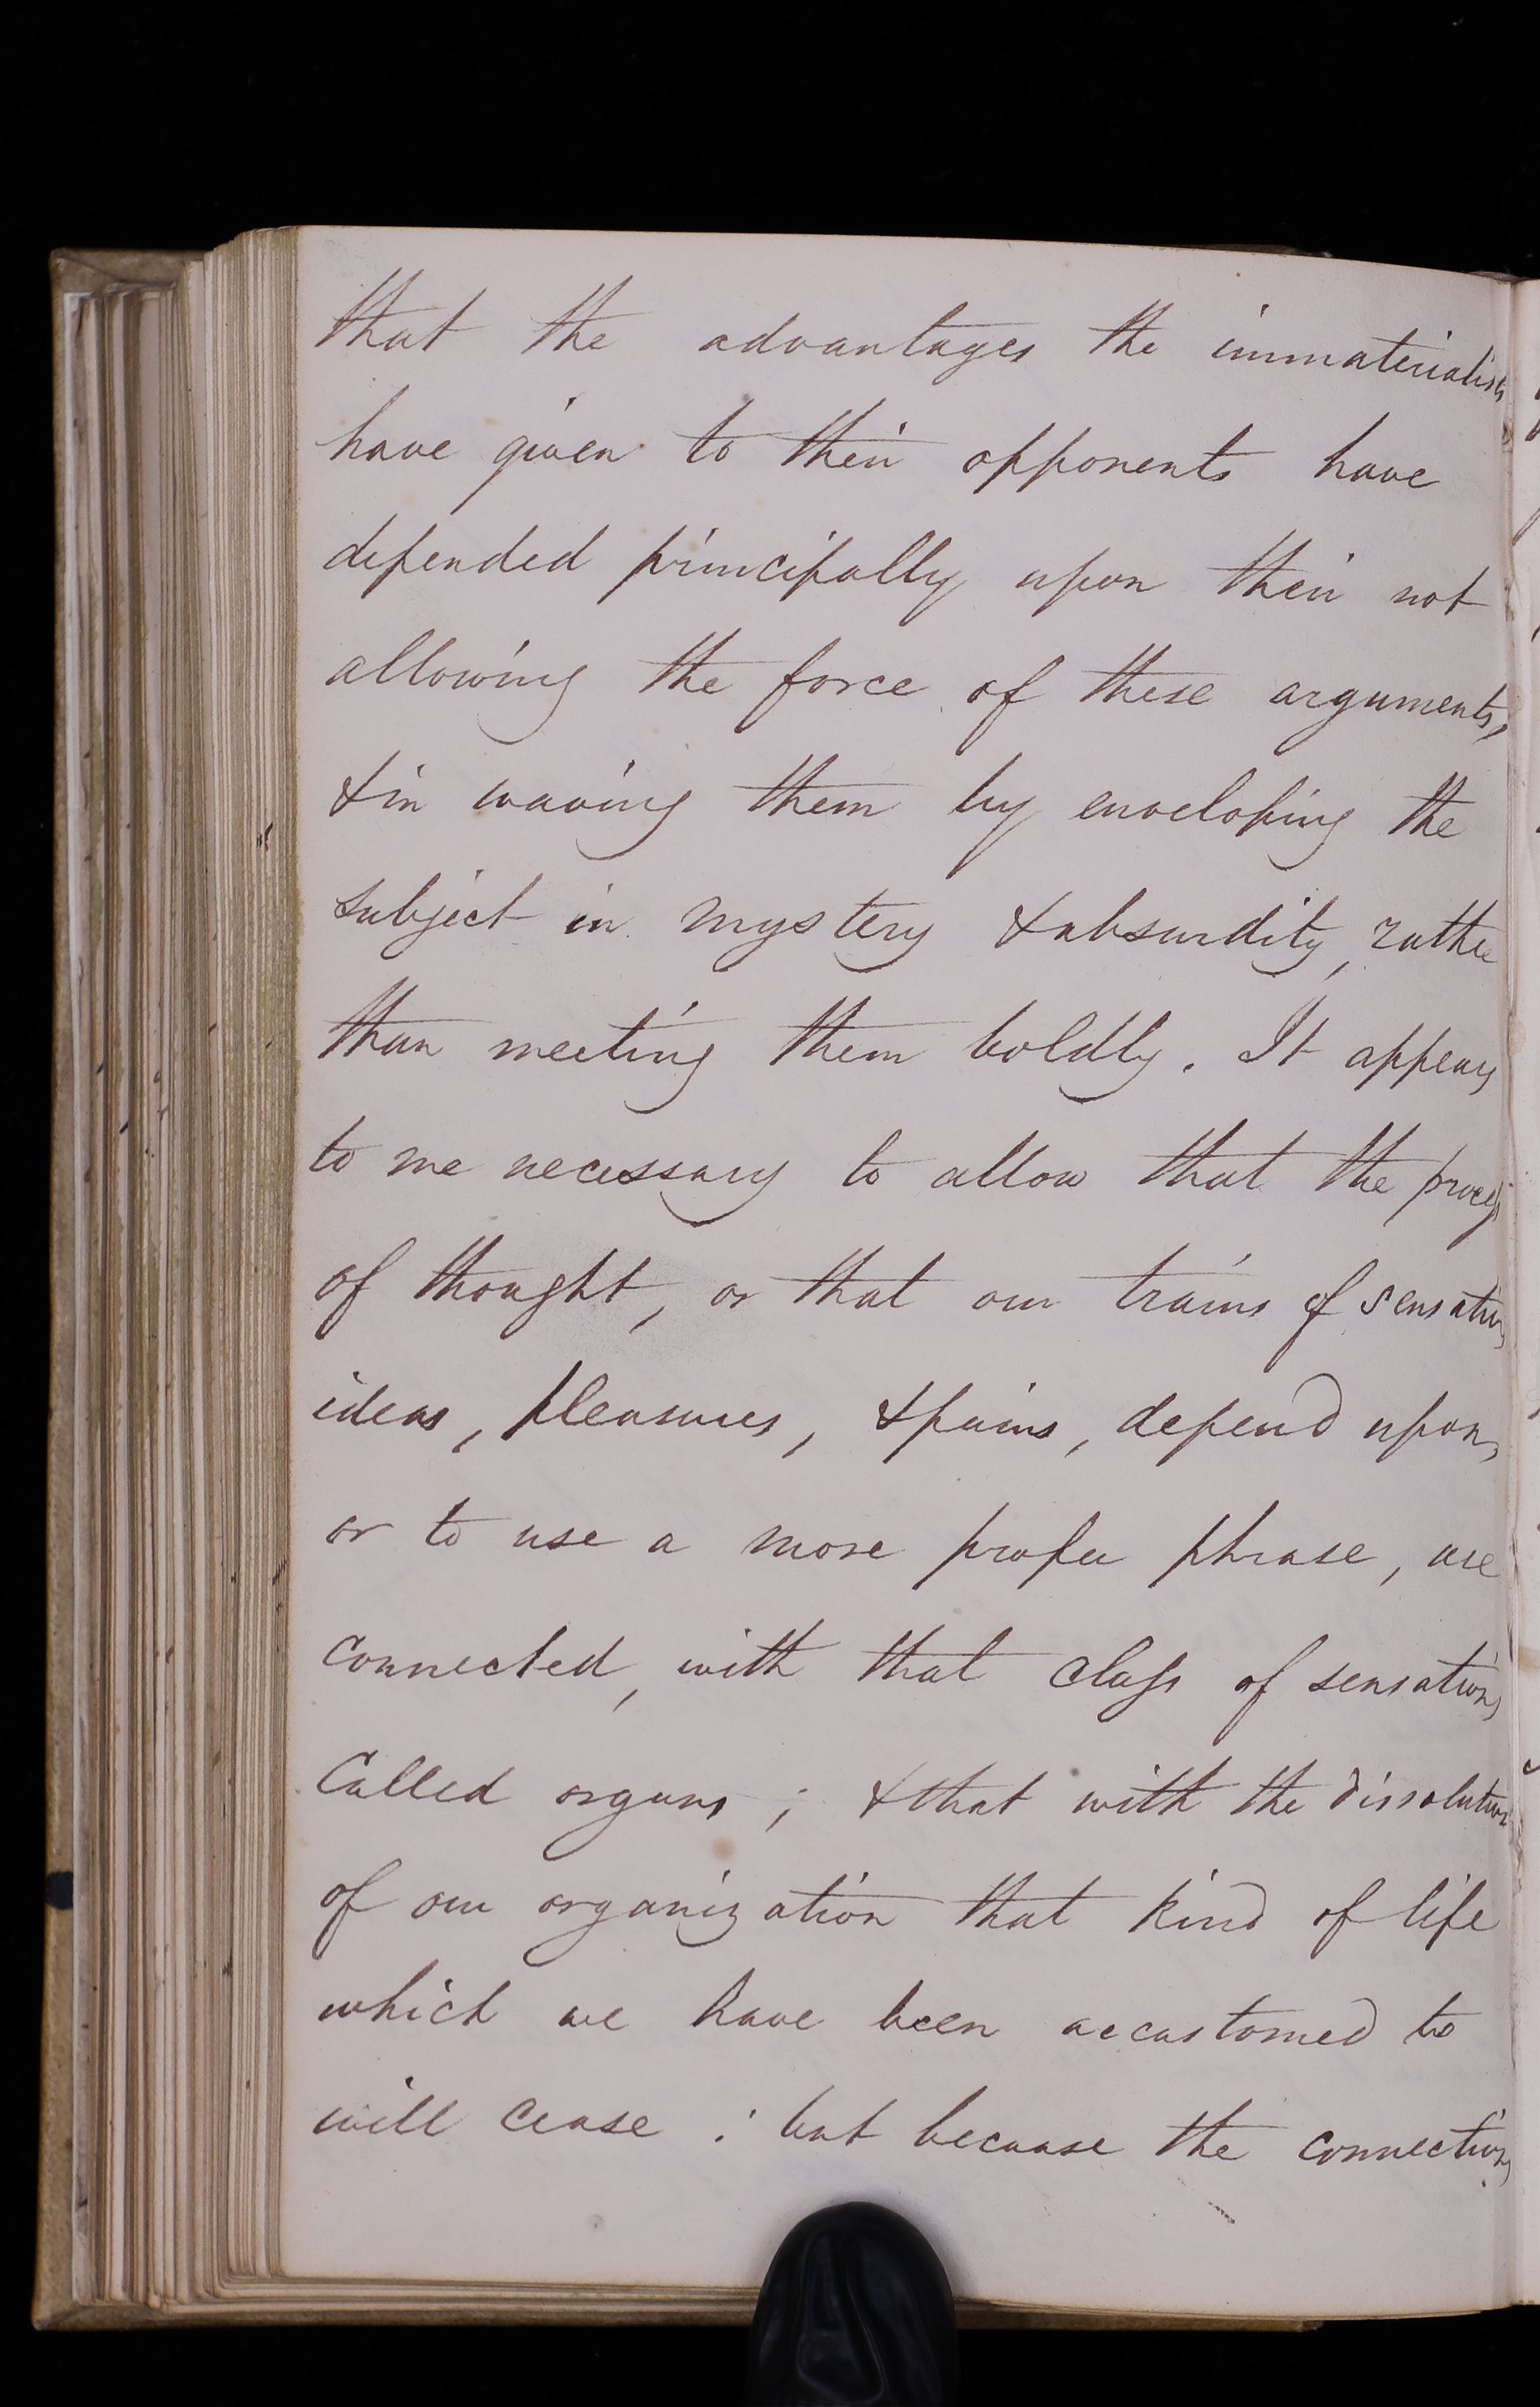 that the advantages the immaterialists
have given to their opponents have
depended principally upon their not
allowing the force of these arguments,
& in waving them by enveloping the
subject in mystery & absurdity, rather
than meeting them boldly. It appears
to me necessary to allow that the process
of thought, or that our trains of sensations
ideas, pleasures, & pains, depend upon,
or to use a more proper phrase, are
connected, with that class of sensations
called organs; & that with the dissolution
of our organization that kind of life
which we have been accustomed to
will cease : but because the connection